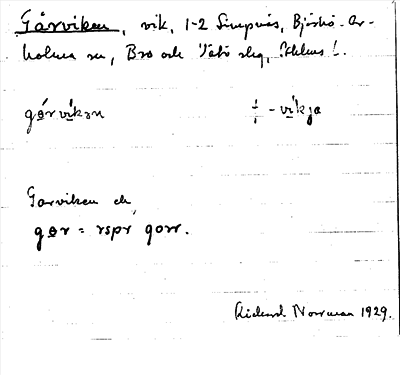 Gårviken, vik, 1-2 Simpnäs, Björkö-Ar-
holma sn, Bro och Vätö slg, Sthlms l.
gǫrvikən ÷ -vikja
Garviken ek,
gør = rspr gorr.
Rickard Norrman 1929.